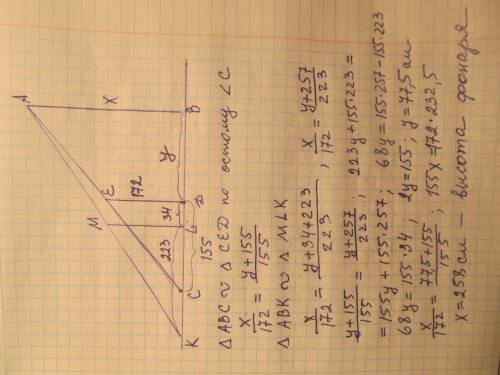 A
M
E
X
172
34
y
K
C
L
D
B
223
155
△ABC ∾ △CED по остому ∠C
x/172 = (y+155)/155
△ABK ∾ △MLK
x/172 = (y+34+223)/223 ; x/172 = (y+257)/223
(y+155)/155 = (y+257)/223 ; 223y+155·223=
=155y+155·257; 68y=155·257-155·223
68y=155·34; 2y=155; y=77,5см
x/172 = (77,5+155)/155 ; 155x=172·232,5
x=258см – высота фонаря